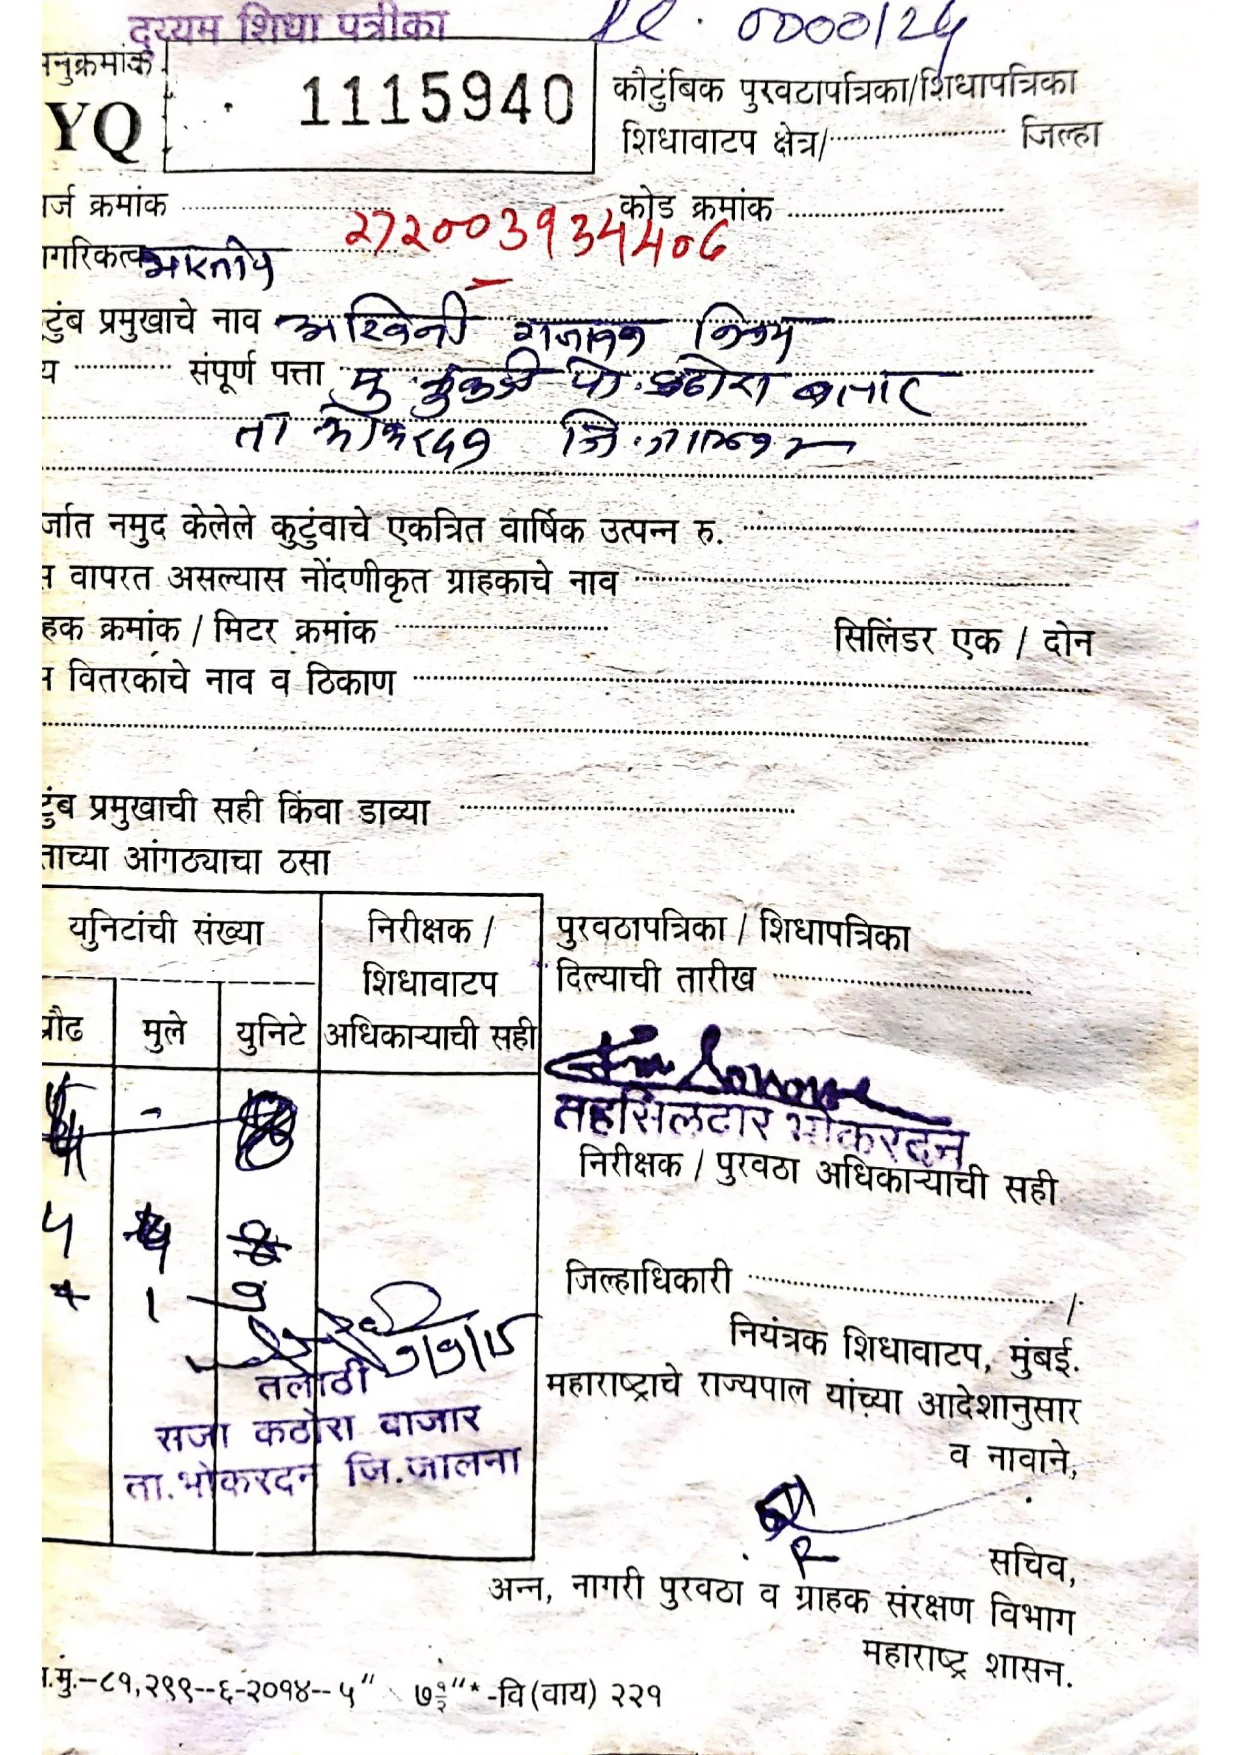 दुय्यम शिधा पत्रीका
नुक्रमांक
YQ 1115940
कौटुंबिक पुरवठापत्रिका/शिधापत्रिका
शिधावाटप क्षेत्र/ जिल्हा
र्ज क्रमांक कोड क्रमांक
272003934406
गरिकत्व भारतीय
टुंब प्रमुखाचे नाव अश्विनी गजानन
य संपूर्ण पत्ता मु. पो.
ता भोकरदन जि. जालना
र्जात नमुद केलेले कुटुंवाचे एकत्रित वार्षिक उत्पन्न रु.
वापरत असल्यास नोंदणीकृत ग्राहकाचे नाव
हक क्रमांक / मिटर क्रमांक सिलिंडर एक / दोन
वितरकाचे नाव व ठिकाण
टुंब प्रमुखाची सही किंवा डाव्या
ताच्या आंगठ्याचा ठसा
युनिटांची संख्या निरीक्षक / शिधावाटप अधिकाऱ्याची सही
प्रौढ मुले युनिटे
पुरवठापत्रिका / शिधापत्रिका
दिल्याची तारीख
तहसिलदार भोकरदन
निरीक्षक / पुरवठा अधिकाऱ्याची सही
५
१
जिल्हाधिकारी /
नियंत्रक शिधावाटप, मुंबई.
तलाठी
सजा कठोरा बाजार
ता.भोकरदन जि.जालना
महाराष्ट्राचे राज्यपाल यांच्या आदेशानुसार
व नावाने,
सचिव,
अन्न, नागरी पुरवठा व ग्राहक संरक्षण विभाग
महाराष्ट्र शासन.
.मु.--८१,२९९--६-२०१४--५" ७१/२"* -वि (वाय) २२१